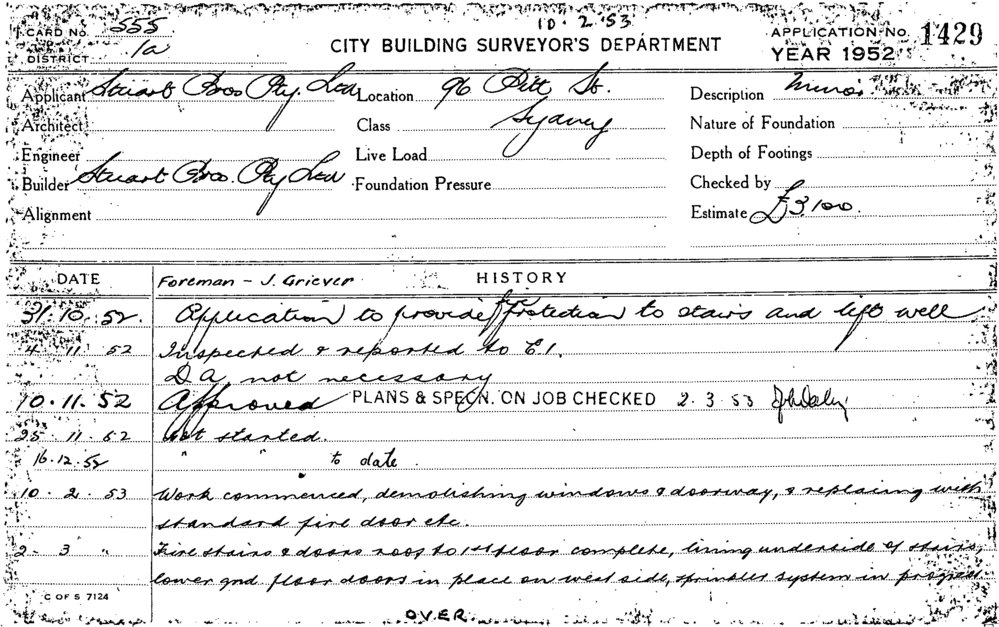 10.2.53
CARD No. 555
DISTRICT 1a
CITY BUILDING SURVEYOR'S DEPARTMENT
APPLICATION No. 1429
YEAR 1952
Applicant Stuart Bros. Pty. Ltd. Location 96 Pitt St. Description Minor
Architect Class Sydney Nature of Foundation
Engineer Live Load Depth of Footings
Builder Stuart Bros. Pty Ltd Foundation Pressure Checked by
Alignment Estimate £3100.
DATE Foreman - J. Griever HISTORY
31.10.52. Application to provide fire protection to stairs and lift well
4 11 52 Inspected & reported to C.I.
D A not necessary
10.11.52 Approved PLANS & SPECN. ON JOB CHECKED 2.3.53
25.11.52 Not started.
16.12.52 " " to date.
10.2.53 Work commenced, demolishing windows & doorway, & replacing with
standard fire door etc.
2-3 " Fire stairs & doors roof to 1st floor complete, lining underside of stairs,
lower gnd. floor doors in place on west side, sprinkler system in progress
C OF S 7124
OVER.